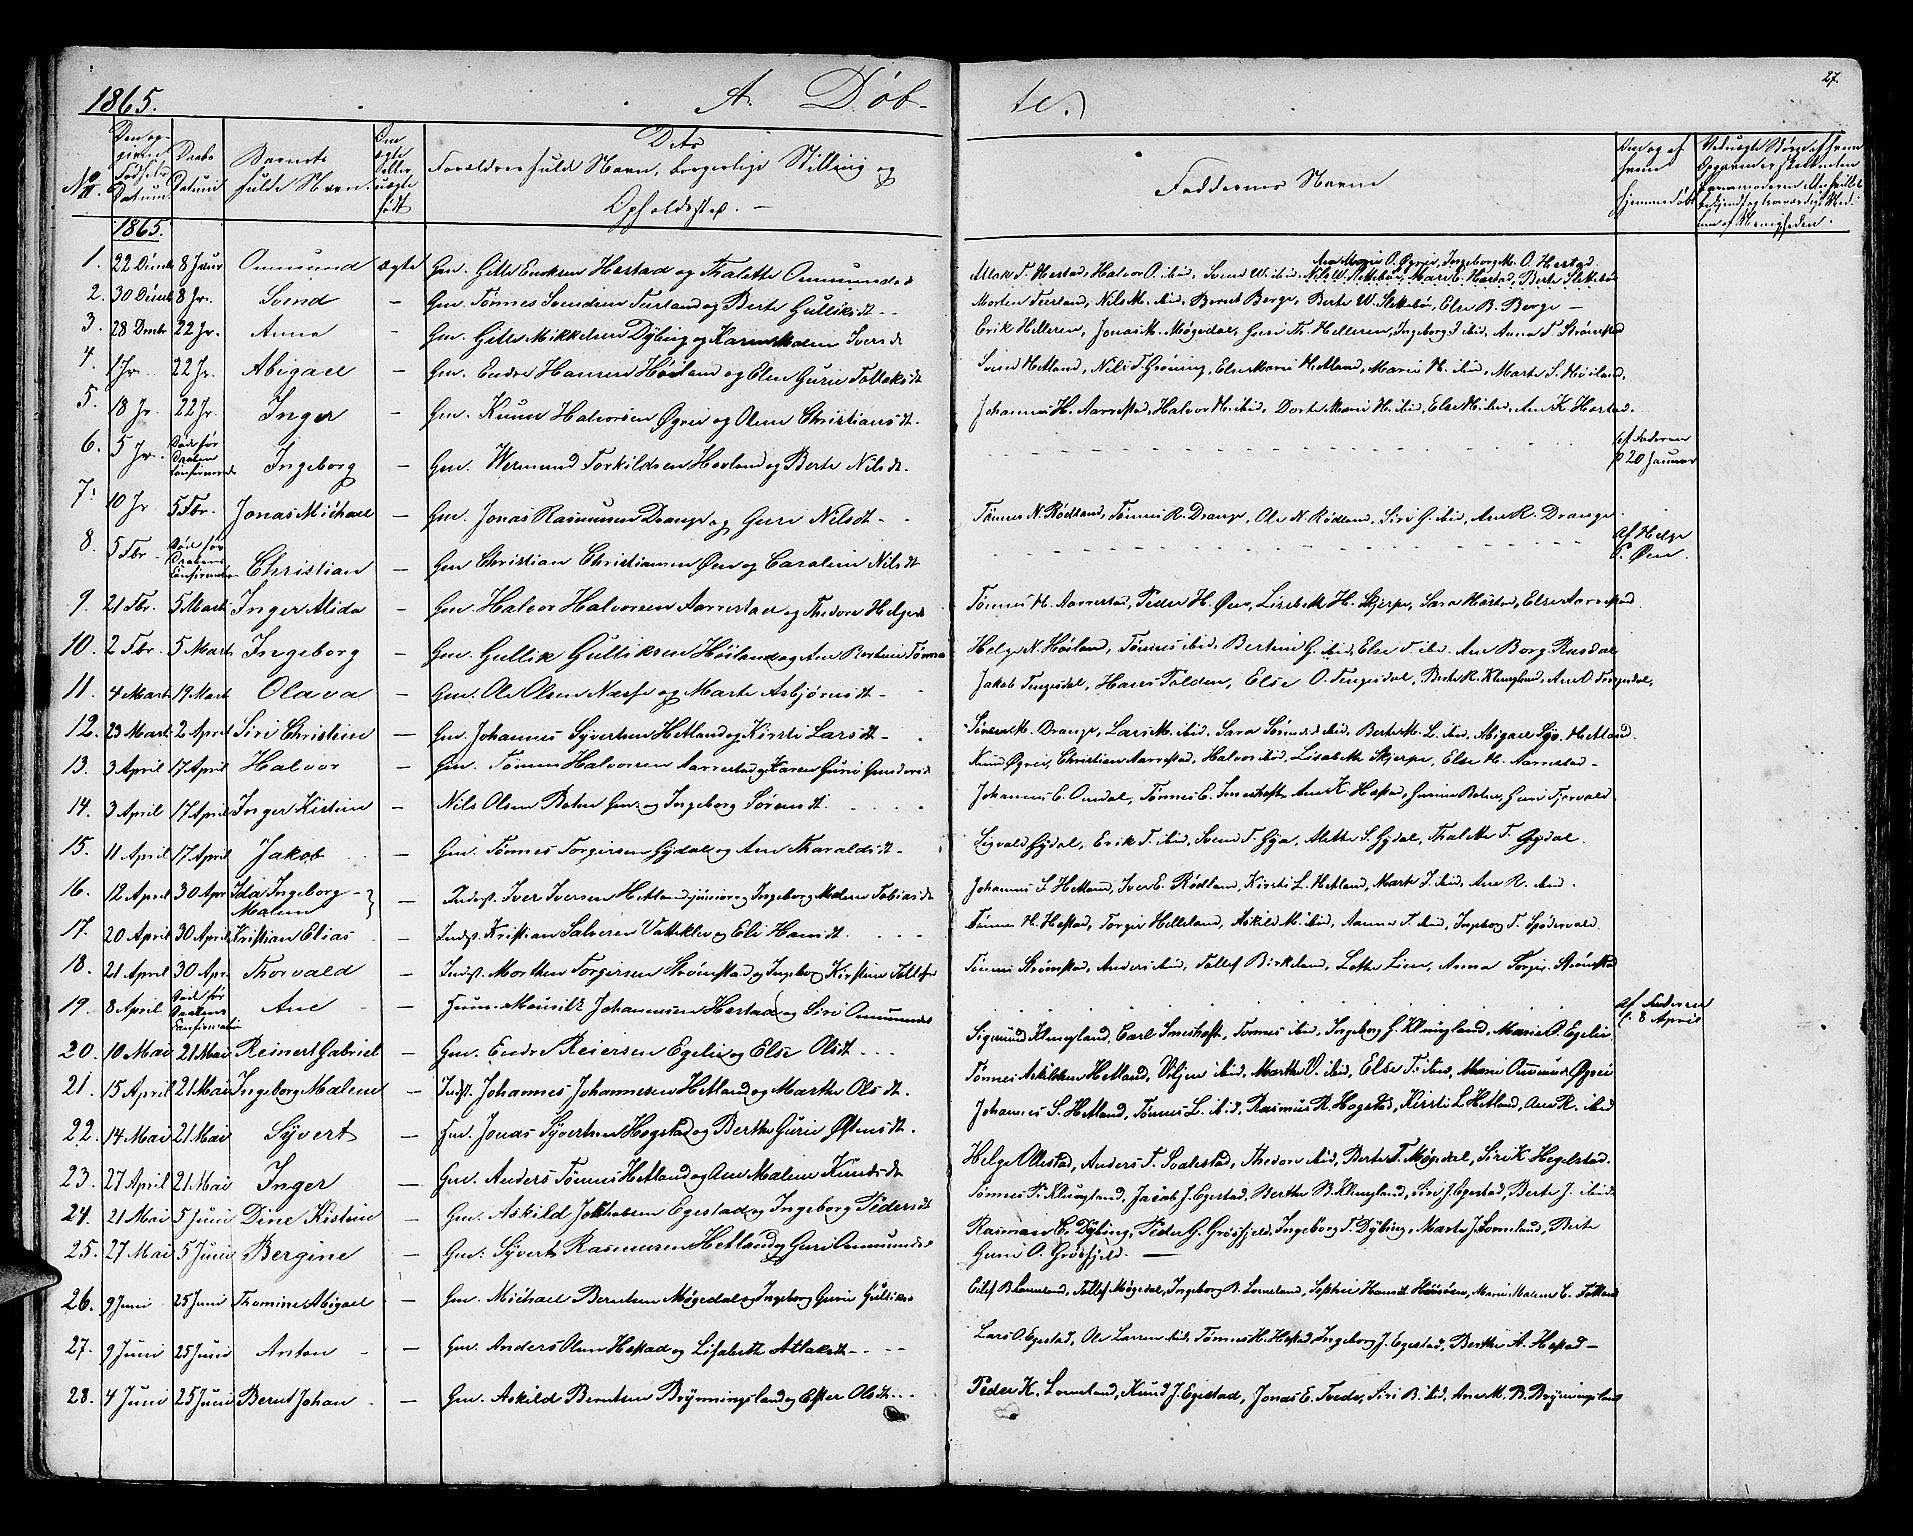 1865. A. Døbte. 27.
No. Den opgivne Fødsels Datum Daabs Datum Barnets fulde Navn. Om ægte eller uægte født Dets Forældres fulde Navn, borgerlige Stilling og Opholdssted. — Faddernes Navne
1865.
1. 22 Decmb 8 Januar Onmund ægte Gm. Gitle Hestad og Thalette Onmundsd
Ane Marie O. Øgrei, Ingeborg M. O. Hestad.
Atlak T. Hestad, Halvor O. ibid, Svend W. ibid, Nils W. Slettebø, Mari E. Hestad, Berte Slettebø
2. 30 Decmb 8 Jr. Svend — Gm. Tønnes Svendsen og Berte Gulliksdt - -
Morten, Nils M. ibid, Bernt Berge, Berte W. Slettebø, Else B. Berge —
3. 28 Dcmbr 22 Jr. Anna - Gm. Gitle Mikkelsen Dybing og Karen Malene Iversdt
Erik Helleren, Jonas M. Møgedal, Guri Th. Helleren, Ingeborg I. ibid, Anna T. Strømstad
4. 1 Jr. 22 Jr. Abigael - Gm. Endre Hansen Høiland og Elen Gurie Tolleksdt
Svend Hetland, Nils T. Grøning, Else Marie Hetland, Maren H. ibid, Marte S. Høiland.
5. 18 Jr. 22 Jr. Inger — Gm. Knud Halvorsen Øgrei og Olene Christiansdt.
Johannes H. Aarrestad, Halvor H. ibid, Dorte Marie H. ibid, Else H. ibid, Ane K. Hestad.
6. 5 Jr. Død før Daabens Confirmation Ingeborg — Gm. Wermund Torkildsen Hovland og Berte Nilsdt. af Faderen d. 20 Januar
7. 10 Jr. 5 Fbr. Jonas Michael — Gm. Jonas Rasmussen Drange og Guri Nilsdt -
Tønnes N. Rødland, Tønnes R. Drange, Ole N. Rødland, Siri G. ibid, Ane R. Drange
8. 5 Fbr. Død før Daabens Confirmation Christian — Gm Christian Christiansen Øen og Caroline Nilsdt af Helge P. Øen.
9. 21 Fbr. 5 Marts Inger Alida — Gm. Halvor Halvorsen Aarrestad og Thedore Helgesdt
Tønnes H. Aarrestad, Peder H. Øen, Lisebeth H. Skjerpe, Sara Hestad, Else Aarrestad
10. 2 Fbr. 5 Marts Ingeborg — Gm. Gullik Gulliksen Høiland og Ane Bertine Tønnes
Helge N. Høiland, Tønnes ibid, Bertine G. ibid, Else T. ibid, Ane Borg Rusdal
11. 4 Marts 19 Marts Olava — Gm. Ole Olsen Næsse og Marte Asbjørnsdt -
Jakob Tengesdal, Hans Tolden, Else O. Tengesdal, Berte R. Klungland, Ane O. Tengesdal,
12. 23 Marts 2 April Siri Christine — Gm. Johannes Syvertsen Hetland og Kirsti Larsdt -
Sivert M. Drange, Lars M. ibid, Sara Sørensd. ibid, Berte M. L. ibid, Abigael Syv. Hetland.
13. 3 April 17 April Halvor — Gm. Tønnes Halvorsen Aarrestad og Karen Gurie
Knud Øgrei, Christian Aarrestad, Halvor ibid, Lisabeth Skjerpe, Else H. Aarrestad -
14. 3 April 17 April Inger Kistine — Nils Olsen Gm. og Ingeborg Sørensdt.
Johannes E. Omdal, Tønnes E., Ane K. Hestad,
15. 11 April 17 April Jakob — Gm. Tønnes Torgersen Gydal og Ane Tharaldsdt -
Sigvald Gydal, Erik T. ibid, Svend T. Gya, Alette S. Gydal, Thalette T. Gydal.
16. 12 April 30 Apr Ida Ingeborg Malene — Indst. Iver Iversen Hetland junior og Ingeborg Malene Tobiasdt
Johannes S. Hetland, Iver E. Rødland, Kirsti L. Hetland, Marte I. ibid, Ane R. ibid.
17. 20 April 30 April Kristian Elias — Indst. Kristian Salvesen Vatteklev og Eli Hansdt.
Tønnes H. Hestad, Torger Helleland, Askild M. ibid, Aanne T. ibid, Ingeborg T. Spødervold.
18. 21 April 30 Apr Thorvald — Indst. Morthen Torgersen Strømstad og Ingeborg Kirstine Tollefsd
Tønnes Strømstad, Anders ibid, Tollef Birkeland, Lotte Lien, Anna Torgers. Strømstad
19. 8 April Død før Daabens Confirmation Ane - Johannesen Hestad og Siri Onmundsdt af Faderen d. 8 April
20. 10 Mai 21 Mai Reinert Gabriel — Gm. Endre Reiersen Egelie og Else Olsdt - - -
Sigmund Klungland, Carl, Tønnes ibid, Ingeborg G. Klungland, Marie O. Egelie.
21. 15 April 21 Mai Ingeborg Malene — Indst. Johannes Johannesen Hetland og Marthe Olsdt.
Tønnes Askildsen Hetland, Viljen ibid, Marthe V. ibid, Else T. ibid, Marie Onmunds Øgrei
22. 14 Mai 21 Mai Syvert — Gm. Jonas Syvertsen Hogstad og Berthe Gurie Østensdt.
Johannes S. Hetland, Tønnes L. ibid, Rasmus R. Hogstad, Kirsti L Hetland, Ane R. ibid
23. 27 April 21 Mai Inger — Gm. Anders Tønnes. Hetland og Ane Malene Knudsdt
Helge Ollestad, Anders T. Svalestad, Thedore ibid, Berte T. Møgedal, Siri K. Hegelstad.
24. 21 Mai 5 Juni Dine Kistine — Gm. Askild Jakobsen Egestad og Ingeborg Pedersdt
Tønnes P. Klungland, Jacob J. Egestad, Berthe B. Klungland, Siri J. Egestad, Berte J. ibid
25. 27 Mai 5 Juni Bergine — Gm. Syvert Rasmussen Hetland og Guri Onmundsdt
Rasmus E. Dybing, Peder G. Grøsfjeld, Ingeborg T. Dybing, Marte J. Lomeland, Berte
Gurie O. Grøsfjeld. —
26. 9 Juni 25 Juni Thomine Abigael — Gm. Michael Berntsen Møgedal og Ingeborg Gurie Gulliks
Eilef B. Lomeland, Tollef Møgedal, Ingeborg B. Lomeland, Sophie Hansdt, Marie Malene E.
27. 9 Juni 25 Juni Anton - — Gm. Anders Olsen Hestad og Lisabeth Atlaksdt - - -
Lars O. Egestad, Ole Larsen ibid, Tønnes H. Hestad, Ingeborg J. Egestad, Berthe A. Hestad —
28. 4 Juni 25 Juni Bernt Johan — Gm. Askild Berntsen Brynningsland og Ester Olsdt - - -
Peder K. Lomeland, Knud J. Egestad, Jonas E. Tvede, Siri B. ibid, Ane M. B. Brynningsland